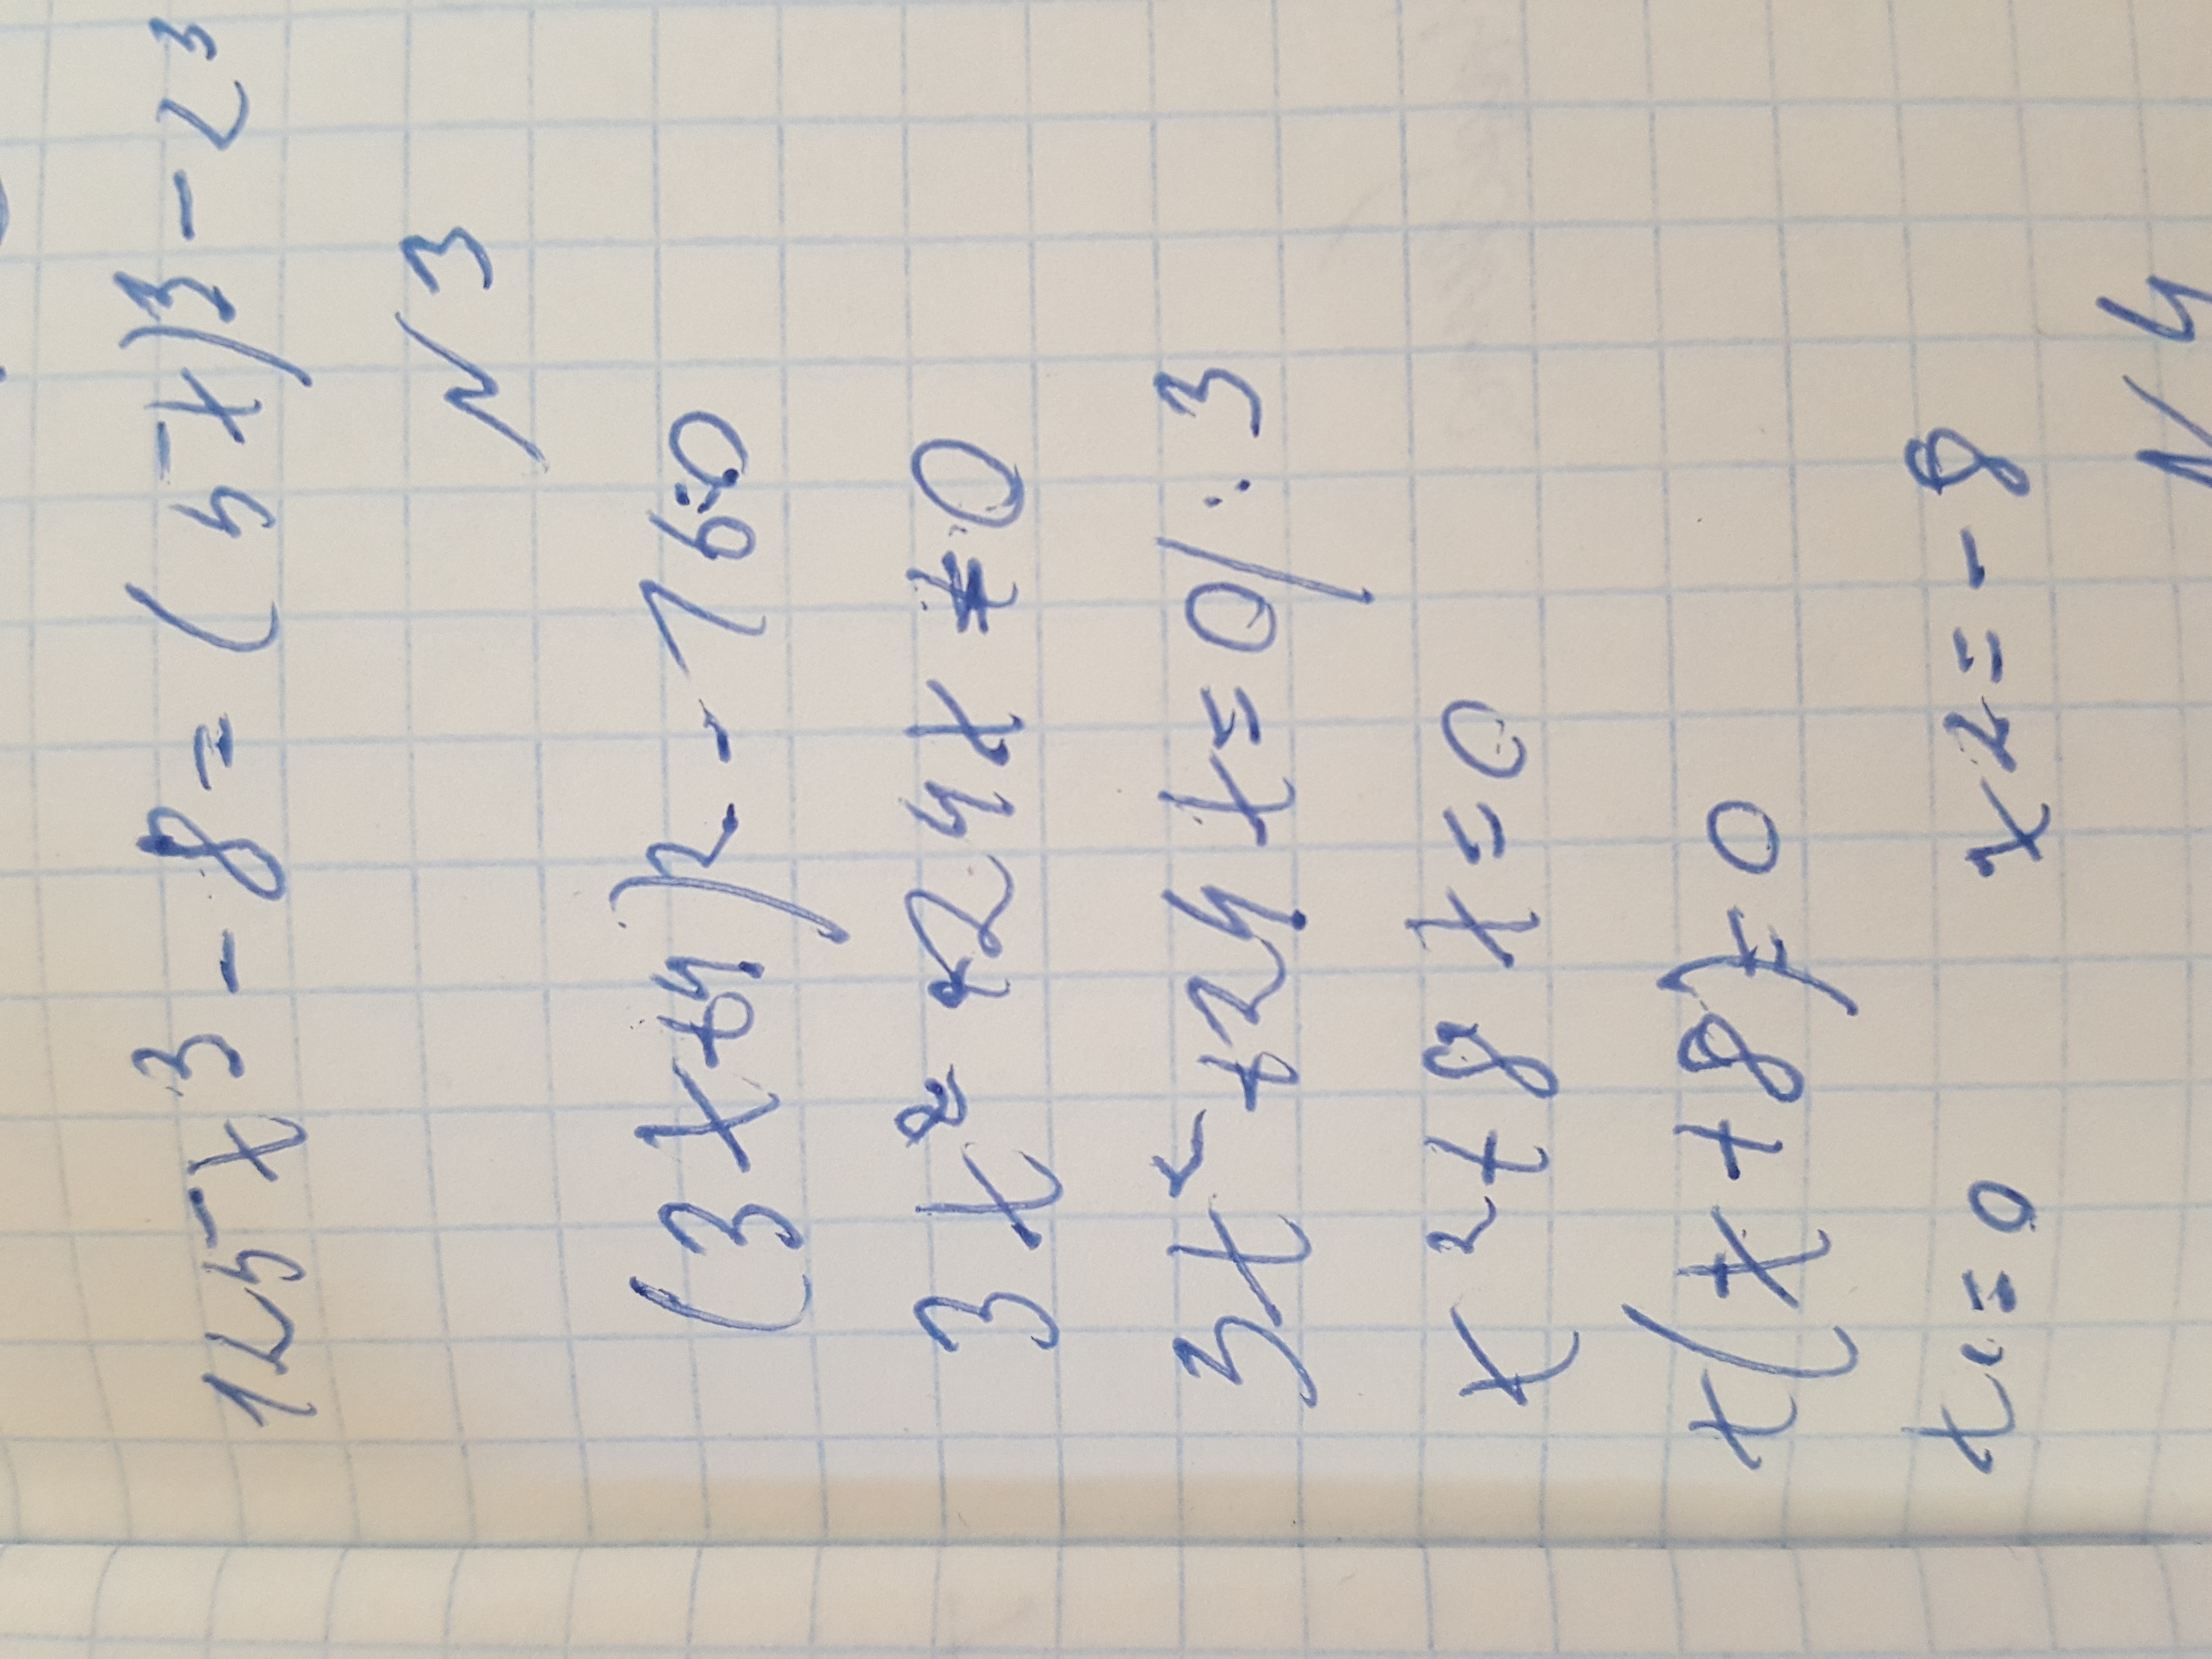 125x³ - 8 = (5x)³ - 2³
N3
(3x+4)² - 16=0
3x² + 24x = 0
3x² + 24x = 0 / : 3
x² + 8x = 0
x(x + 8) = 0
x₁ = 0 x₂ = - 8
N4